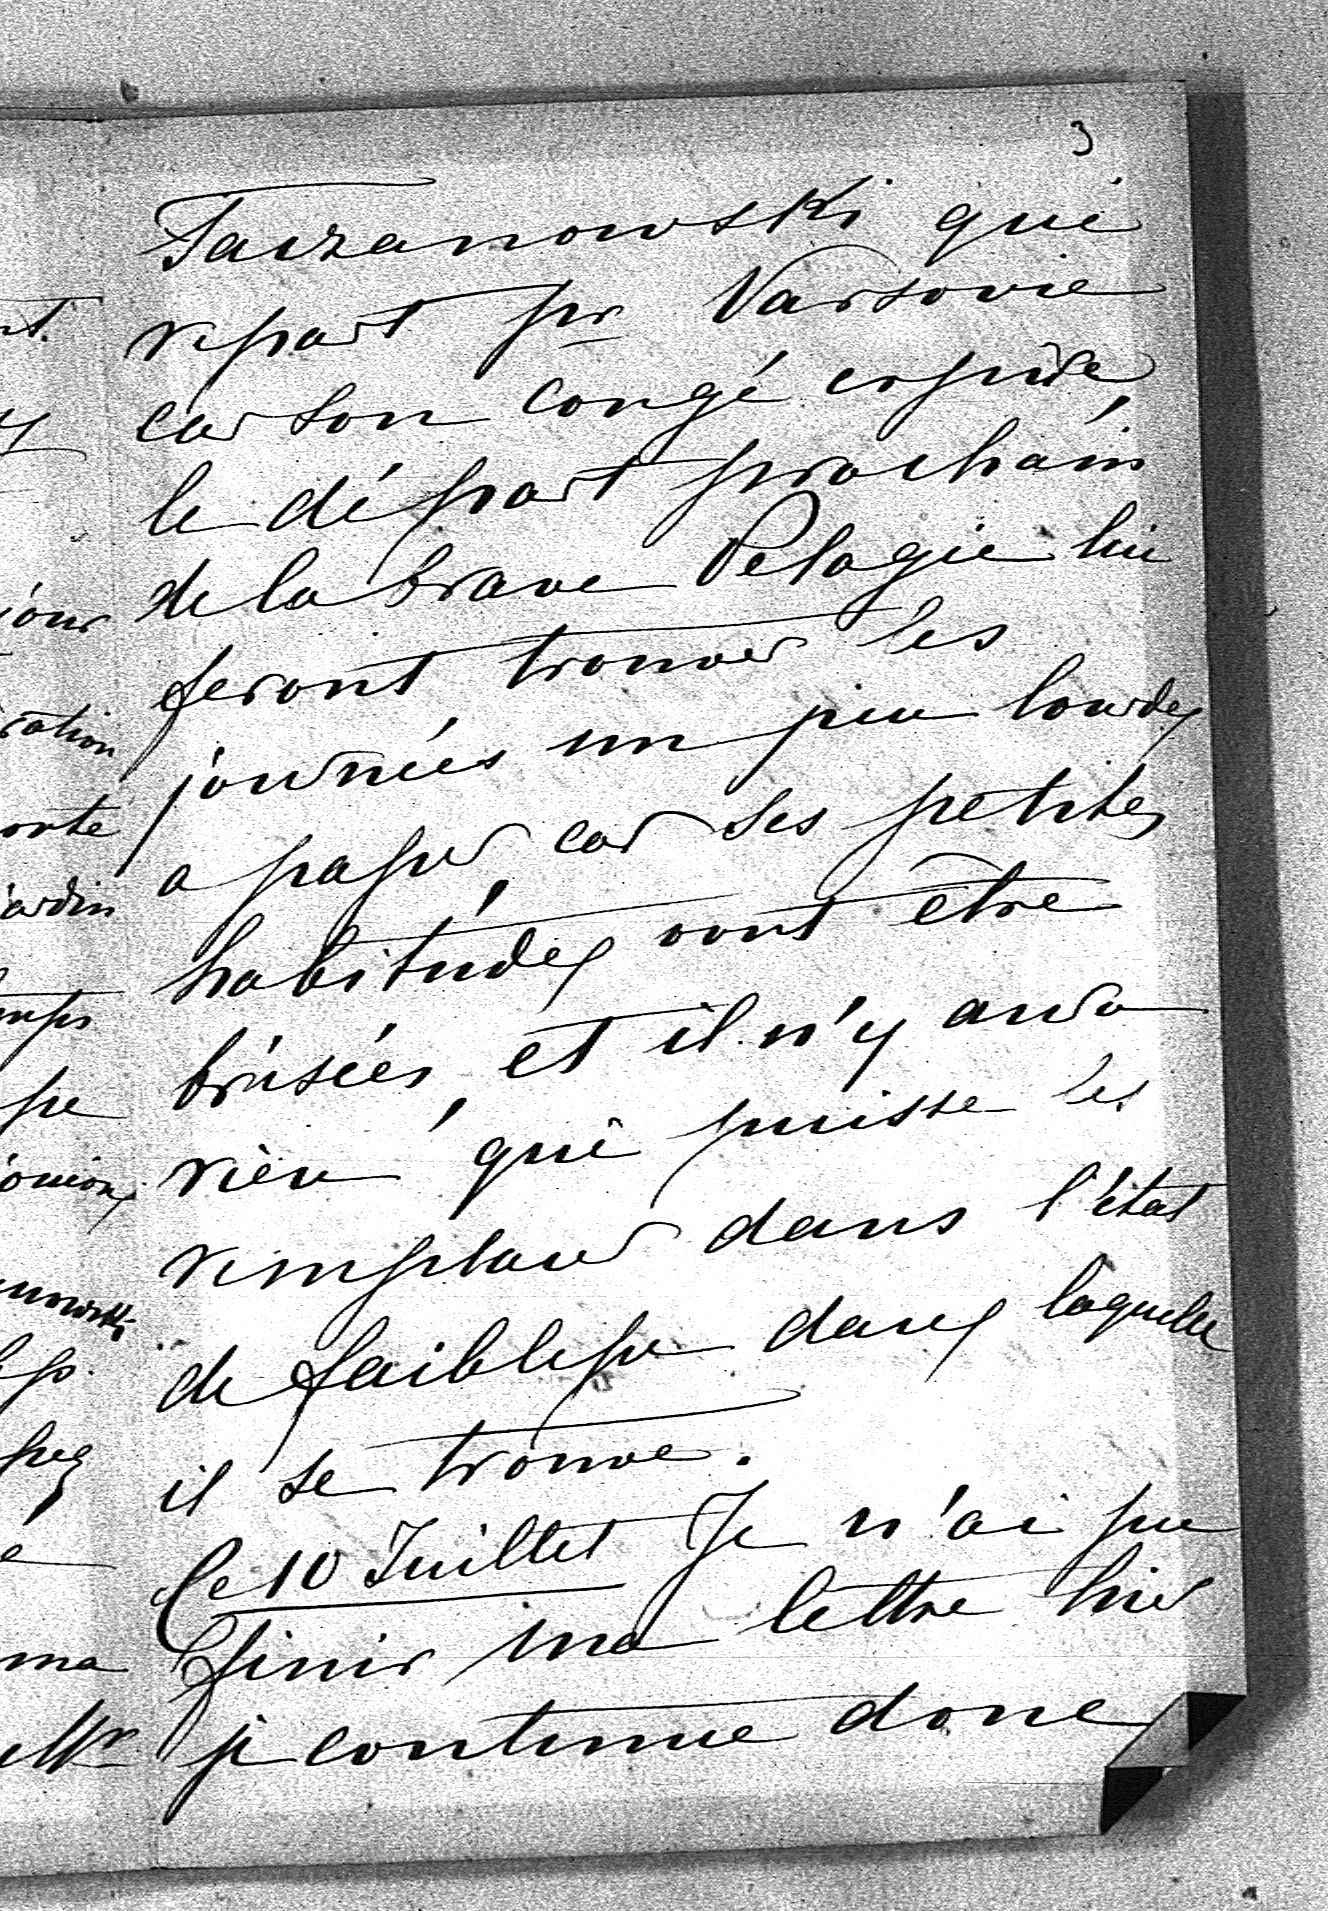 3
Taczanowski qui
repart pr Varsovie
car son congé expire
le départ prochain
de la brave Pelagie lui
feront trouver les
journées un peu lourdes
a passer car ses petites
habitudes vont être
brisées et il n'y aura
rien qui puisse les
remplacer dans l'état
de faiblesse dans laquelle
il se trouve.
Le 10 Juillet Je n'ai pu
finir ma lettre hier
je continue donc